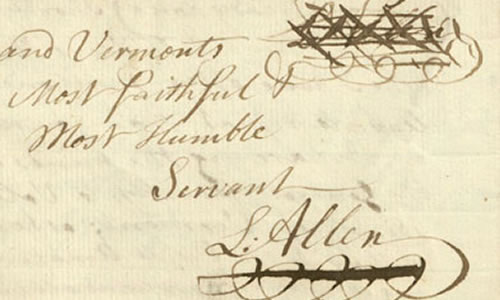 and Vermonts
Most faithful &
Most Humble
Servant
L. Allen